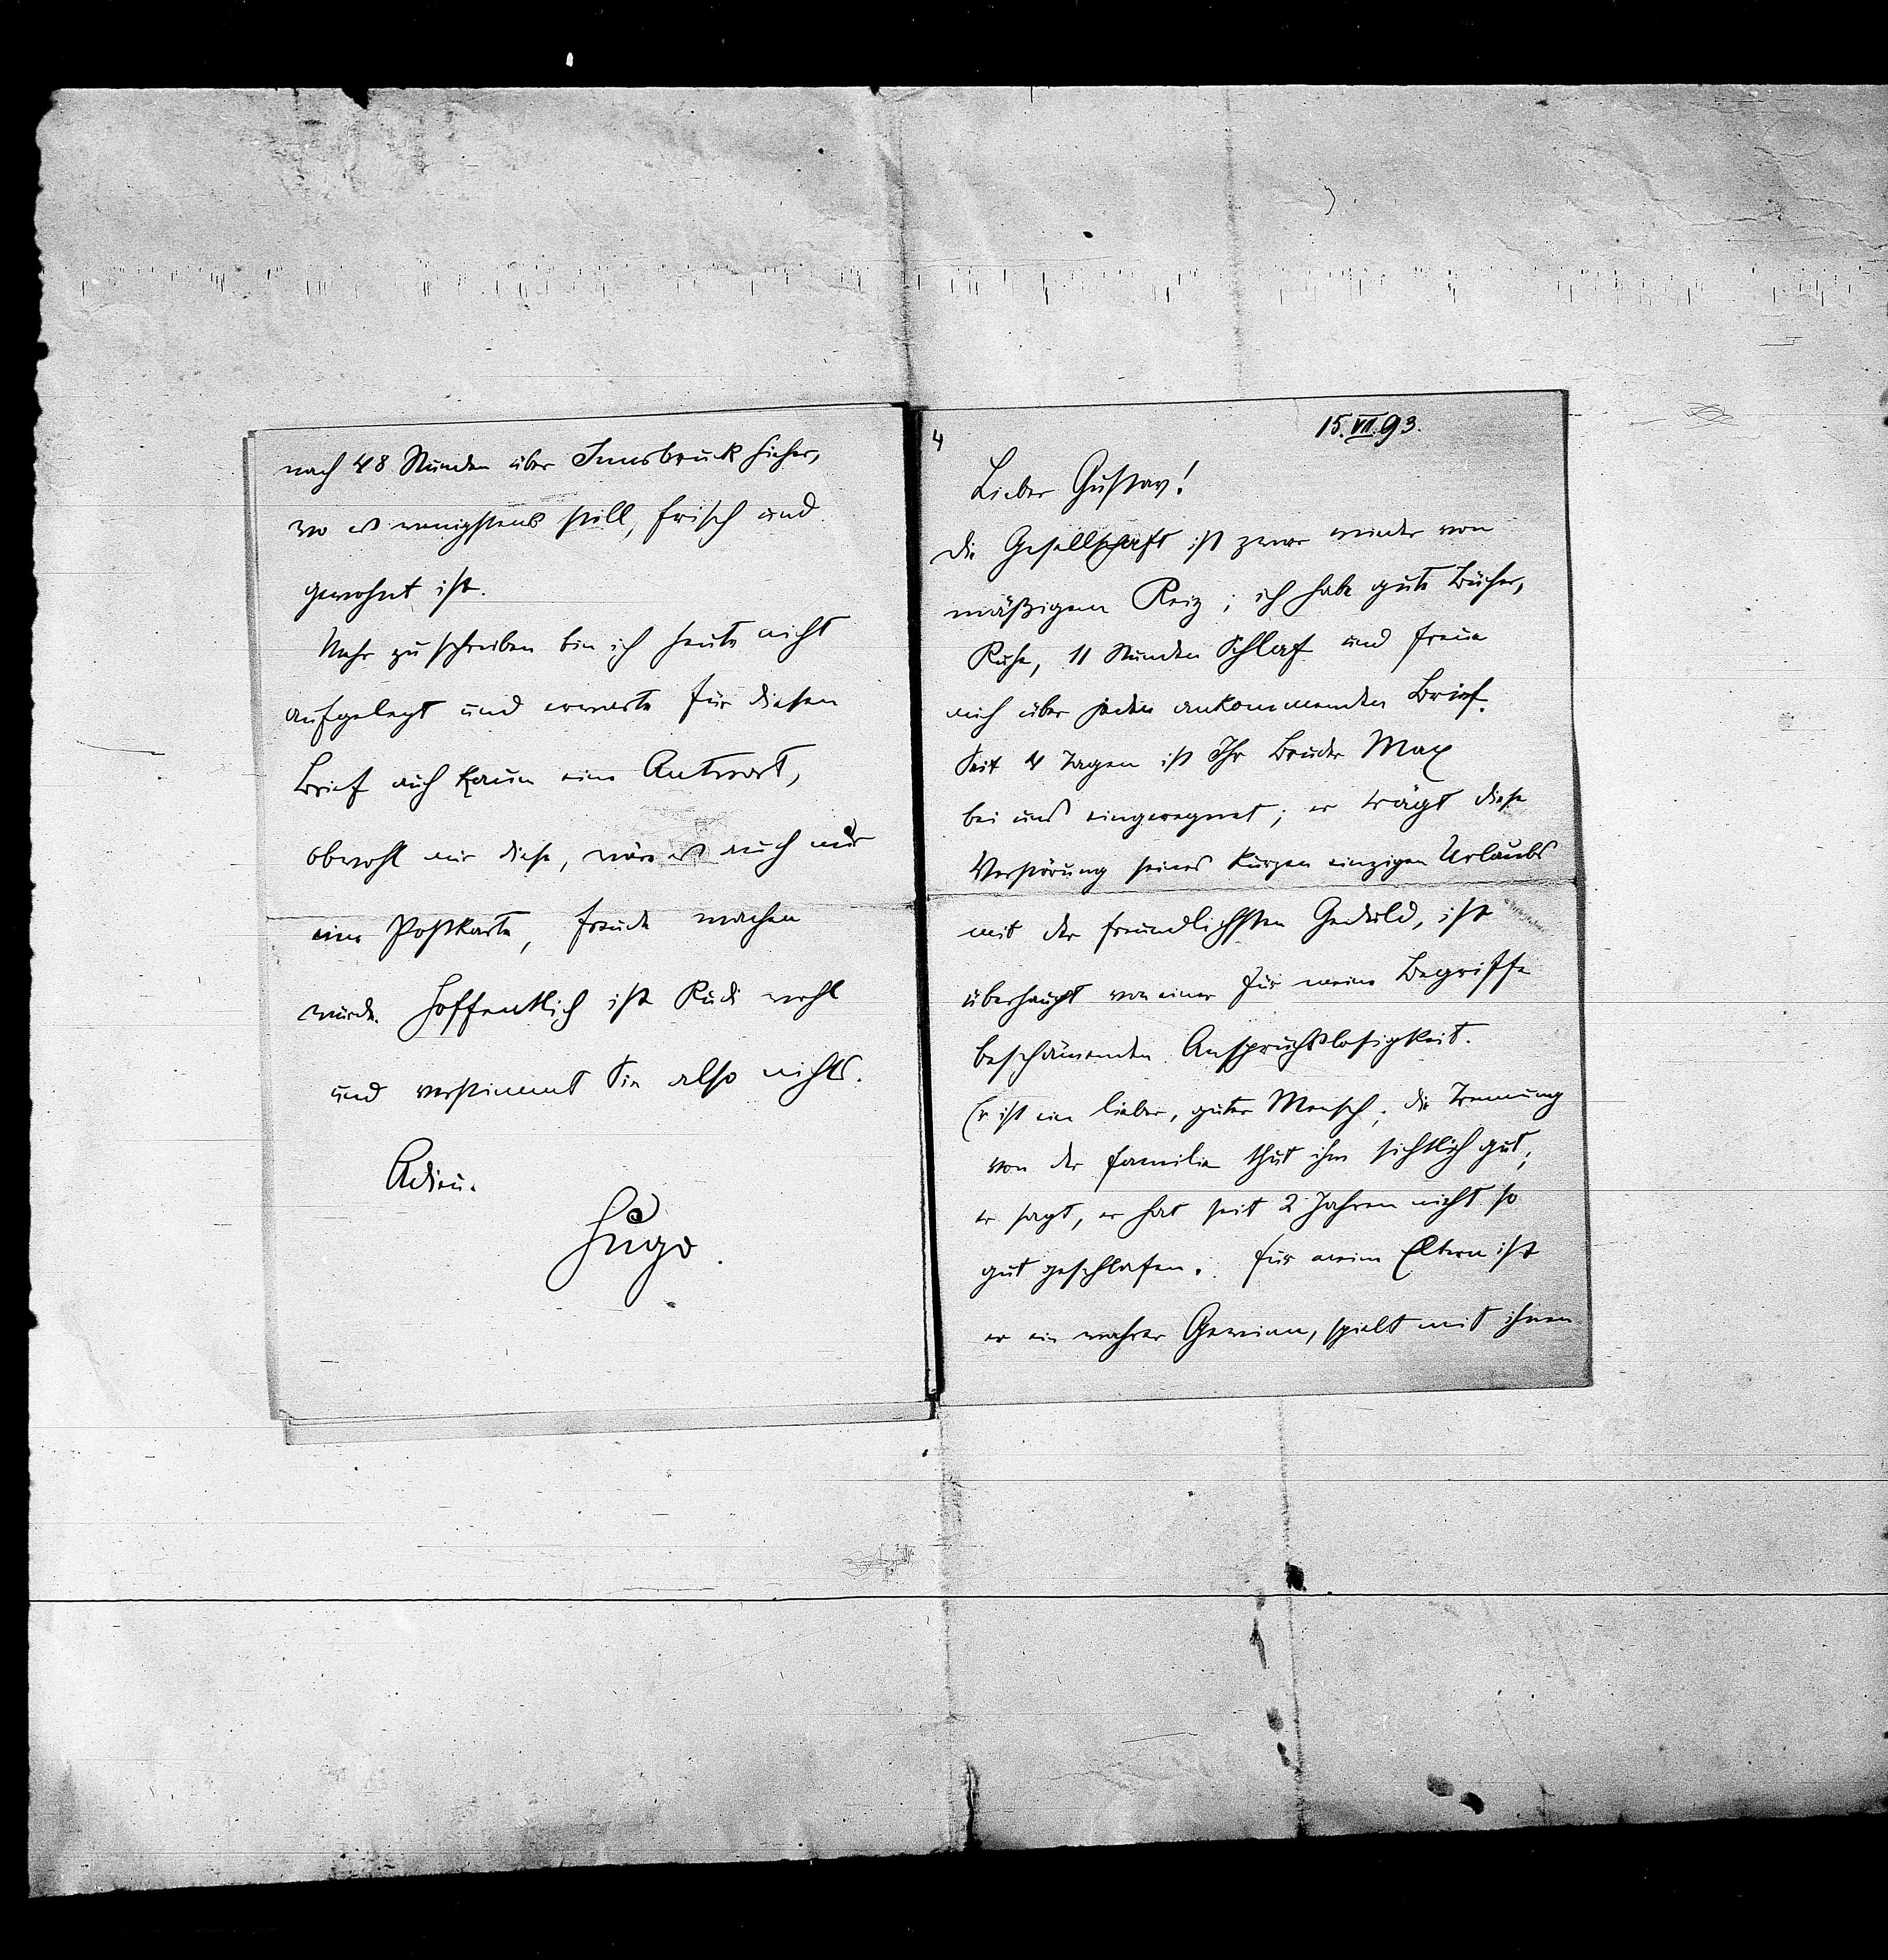 nach 48 Stunden über Innsbruck hieher,
wo es wenigstens still, frisch und
gewohnt ist.
Mehr zu schreiben bin ich heute nicht
aufgelegt und erwarte für diesen
Brief auch kaum eine Antwort,
obwohl mir diese, wäre es auch nur
eine Postkarte, Freude machen
würde. Hoffentlich ist Rudi wohl
und verstimmt Sie also nichts.
Adieu.
Hugo.
4
15. VII. 93.
Lieber Gustav!
die Gesellschaft ist zwar wieder von
mäßigem Reiz; ich habe gute Bücher,
Ruhe, 11 Stunden Schlaf und freue
mich über jeden ankommenden Brief.
Seit 4 Tagen ist Ihr Bruder Max
bei uns eingeregnet; er trägt diese
Verstörung seines kurzen einzigen Urlaubs
mit der freundlichsten Geduld, ist
überhaupt von einer für meine Begriffe
beschämenden Anspruchslosigkeit.
Er ist ein lieber, guter Mensch; die Trennung
von der Familie thut ihm sichtlich gut;
er sagt, er hat seit 2 Jahren nicht so
gut geschlafen. Für meine Eltern ist
er ein wahrer Gewinn, spielt mit ihnen